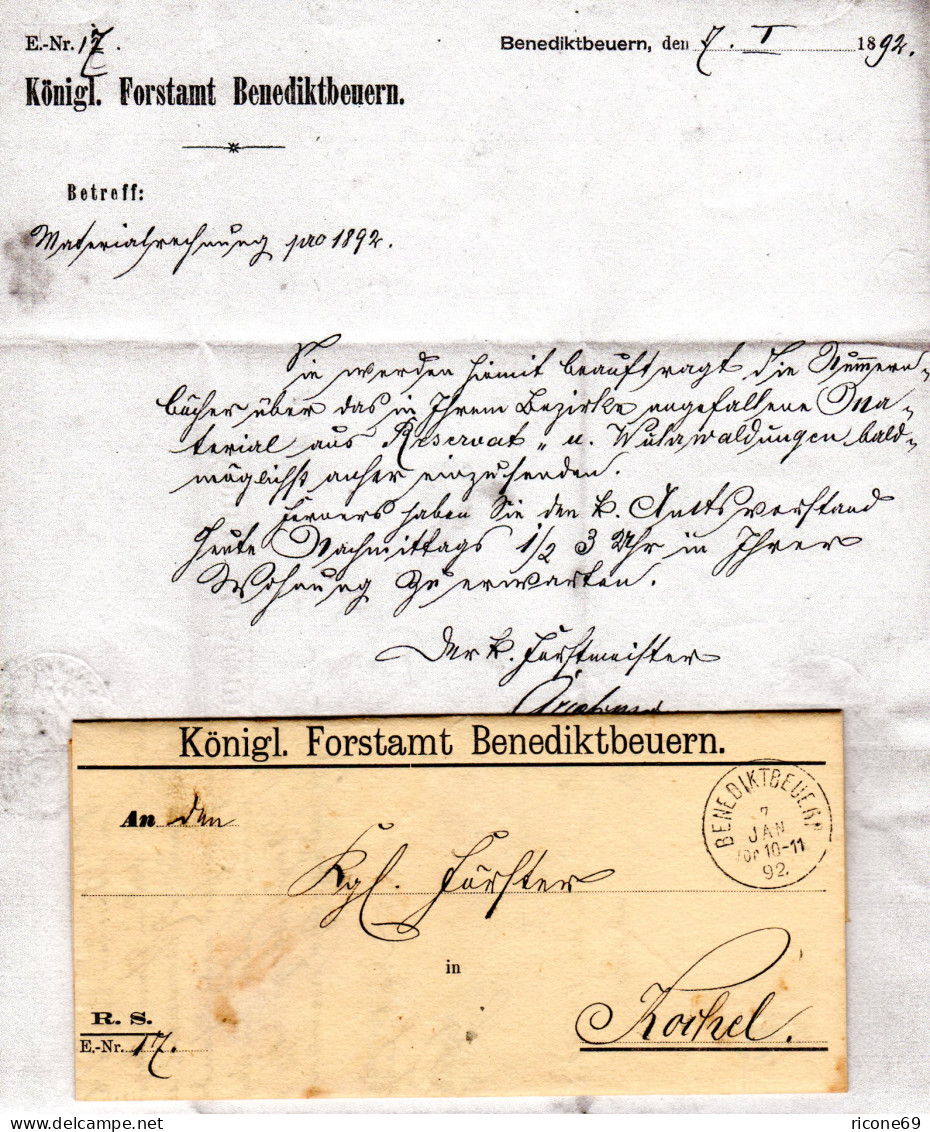 E.-Nr. 17.
Benediktbeuern, den 7. I 1892.
Königl. Forstamt Benediktbeuern.
Betreff:
Materialrechnung pro 1892.
Sie werden hiemit beauftragt die Nummern-
bücher über das in Ihrem Bezirke angefallene Ma-
terial aus Reservat- u. waldungen bald-
möglichst anher einzusenden.
Ferners haben Sie den k. Amtsvorstand
heute Nachmittags 1/2 3 Uhr in Ihrer
Wohnung zu erwarten.
Der k. Forstmeister
Königl. Forstamt Benediktbeuern.
An den
BENEDIKTBEUERN
7
JAN
Vor 10-11
92
Kgl. Förster
in
Kochel.
R. S.
E.-Nr. 17.
delcampe.net
ricone69